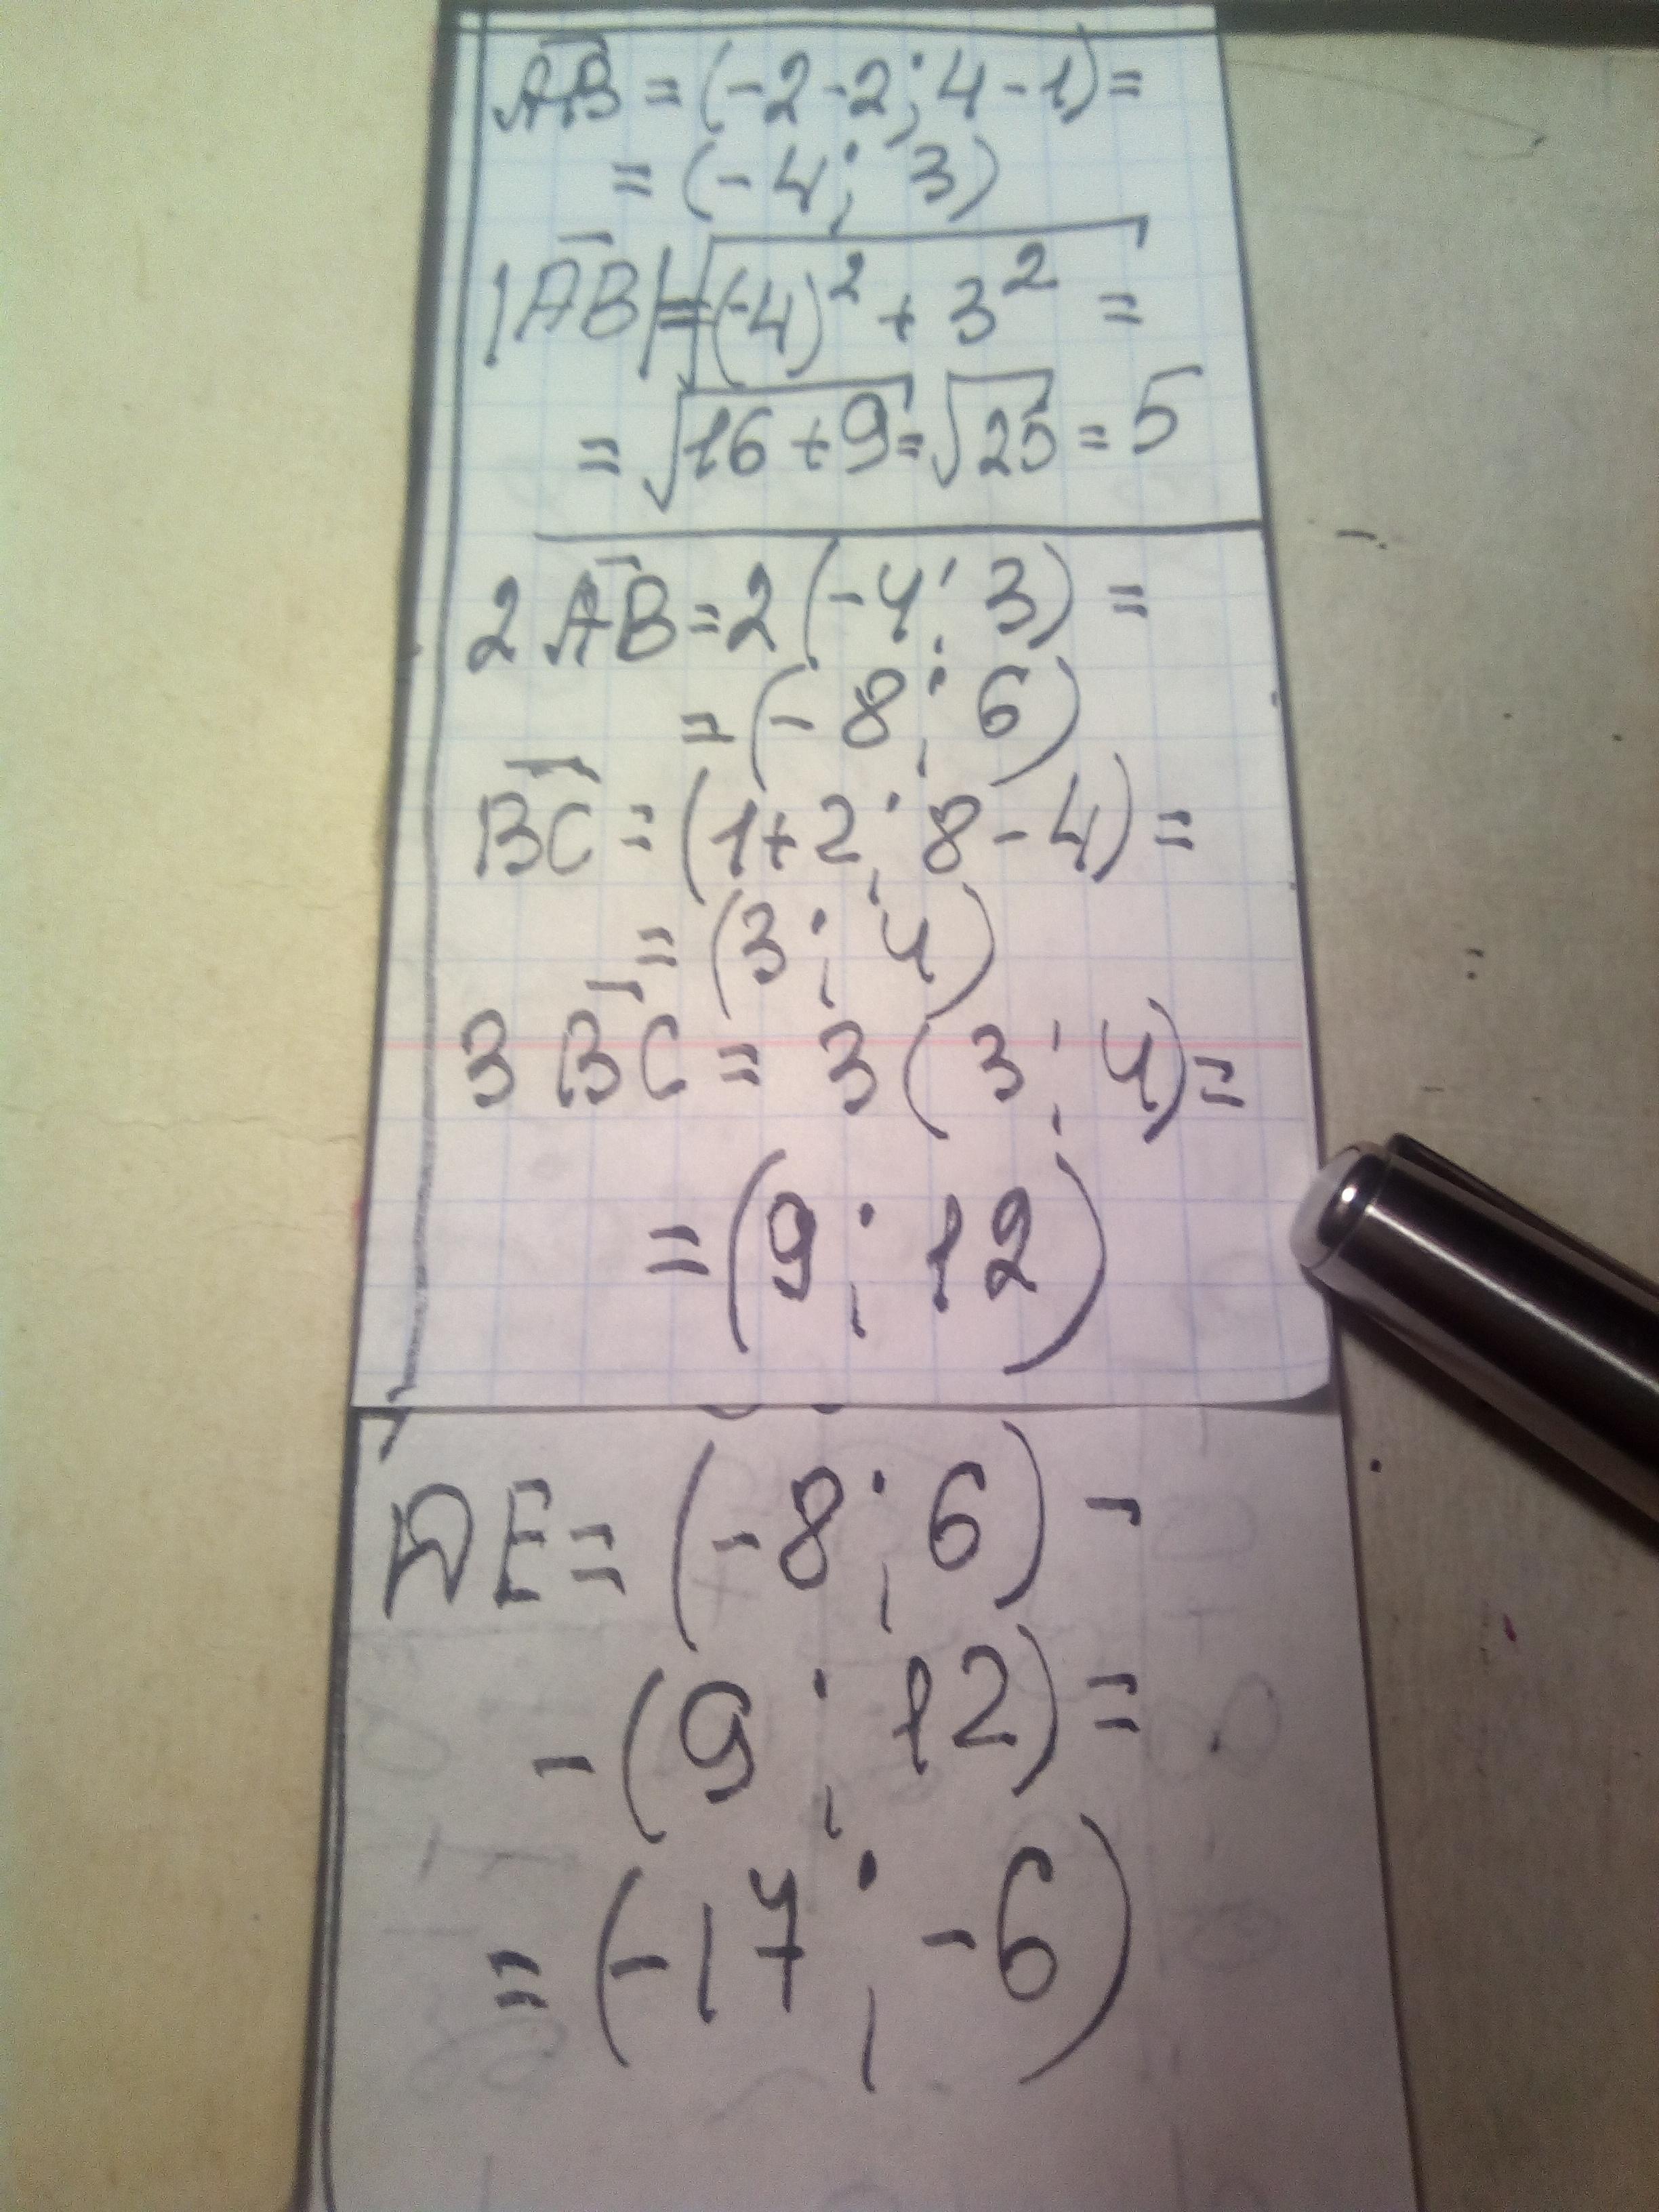 AB = (-2-2; 4-1) =
= (-4; 3)
|AB| = √(-4)² + 3² =
= √16+9 = √25 = 5
2 AB = 2 (-4; 3) =
= (-8; 6)
BC = (1+2; 8-4) =
= (3; 4)
3 BC = 3 (3; 4) =
= (9; 12)
DE = (-8; 6) -
- (9; 12) =
= (-17; -6)